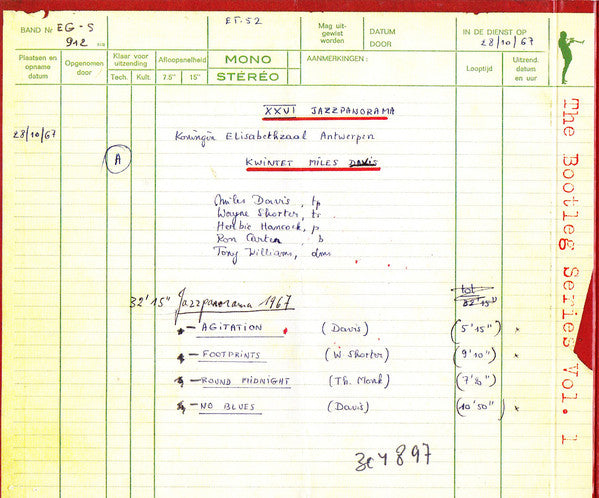 BAND Nr EG-S
912
ET.52
Mag uit-
gewist
worden
DATUM
DOOR
IN DE DIENST OP
28/10/67
Plaatsen en
opname
datum
Opgenomen
door
Klaar voor
uitzending
Tech. Kult.
Afloopsnelheid
7.5" 15"
MONO
STÉRÉO
AANMERKINGEN :
Looptijd
Uitzend.
datum
en uur
XXVI JAZZPANORAMA
28/10/67
Koningin Elisabethzaal Antwerpen
A
KWINTET MILES DAVIS
Miles Davis, tp
Wayne Shorter, ts
Herbie Hancock, p
Ron Carter, b
Tony Williams, dms
tot
32'15" Jazzpanorama 1967 32'15"
- AGITATION (Davis) (5'15") *
- FOOTPRINTS (W Shorter) (9'10") *
- ROUND MIDNIGHT (Th. Monk)
- NO BLUES (Davis) (10'50") *
The Bootleg Series Vol. 1